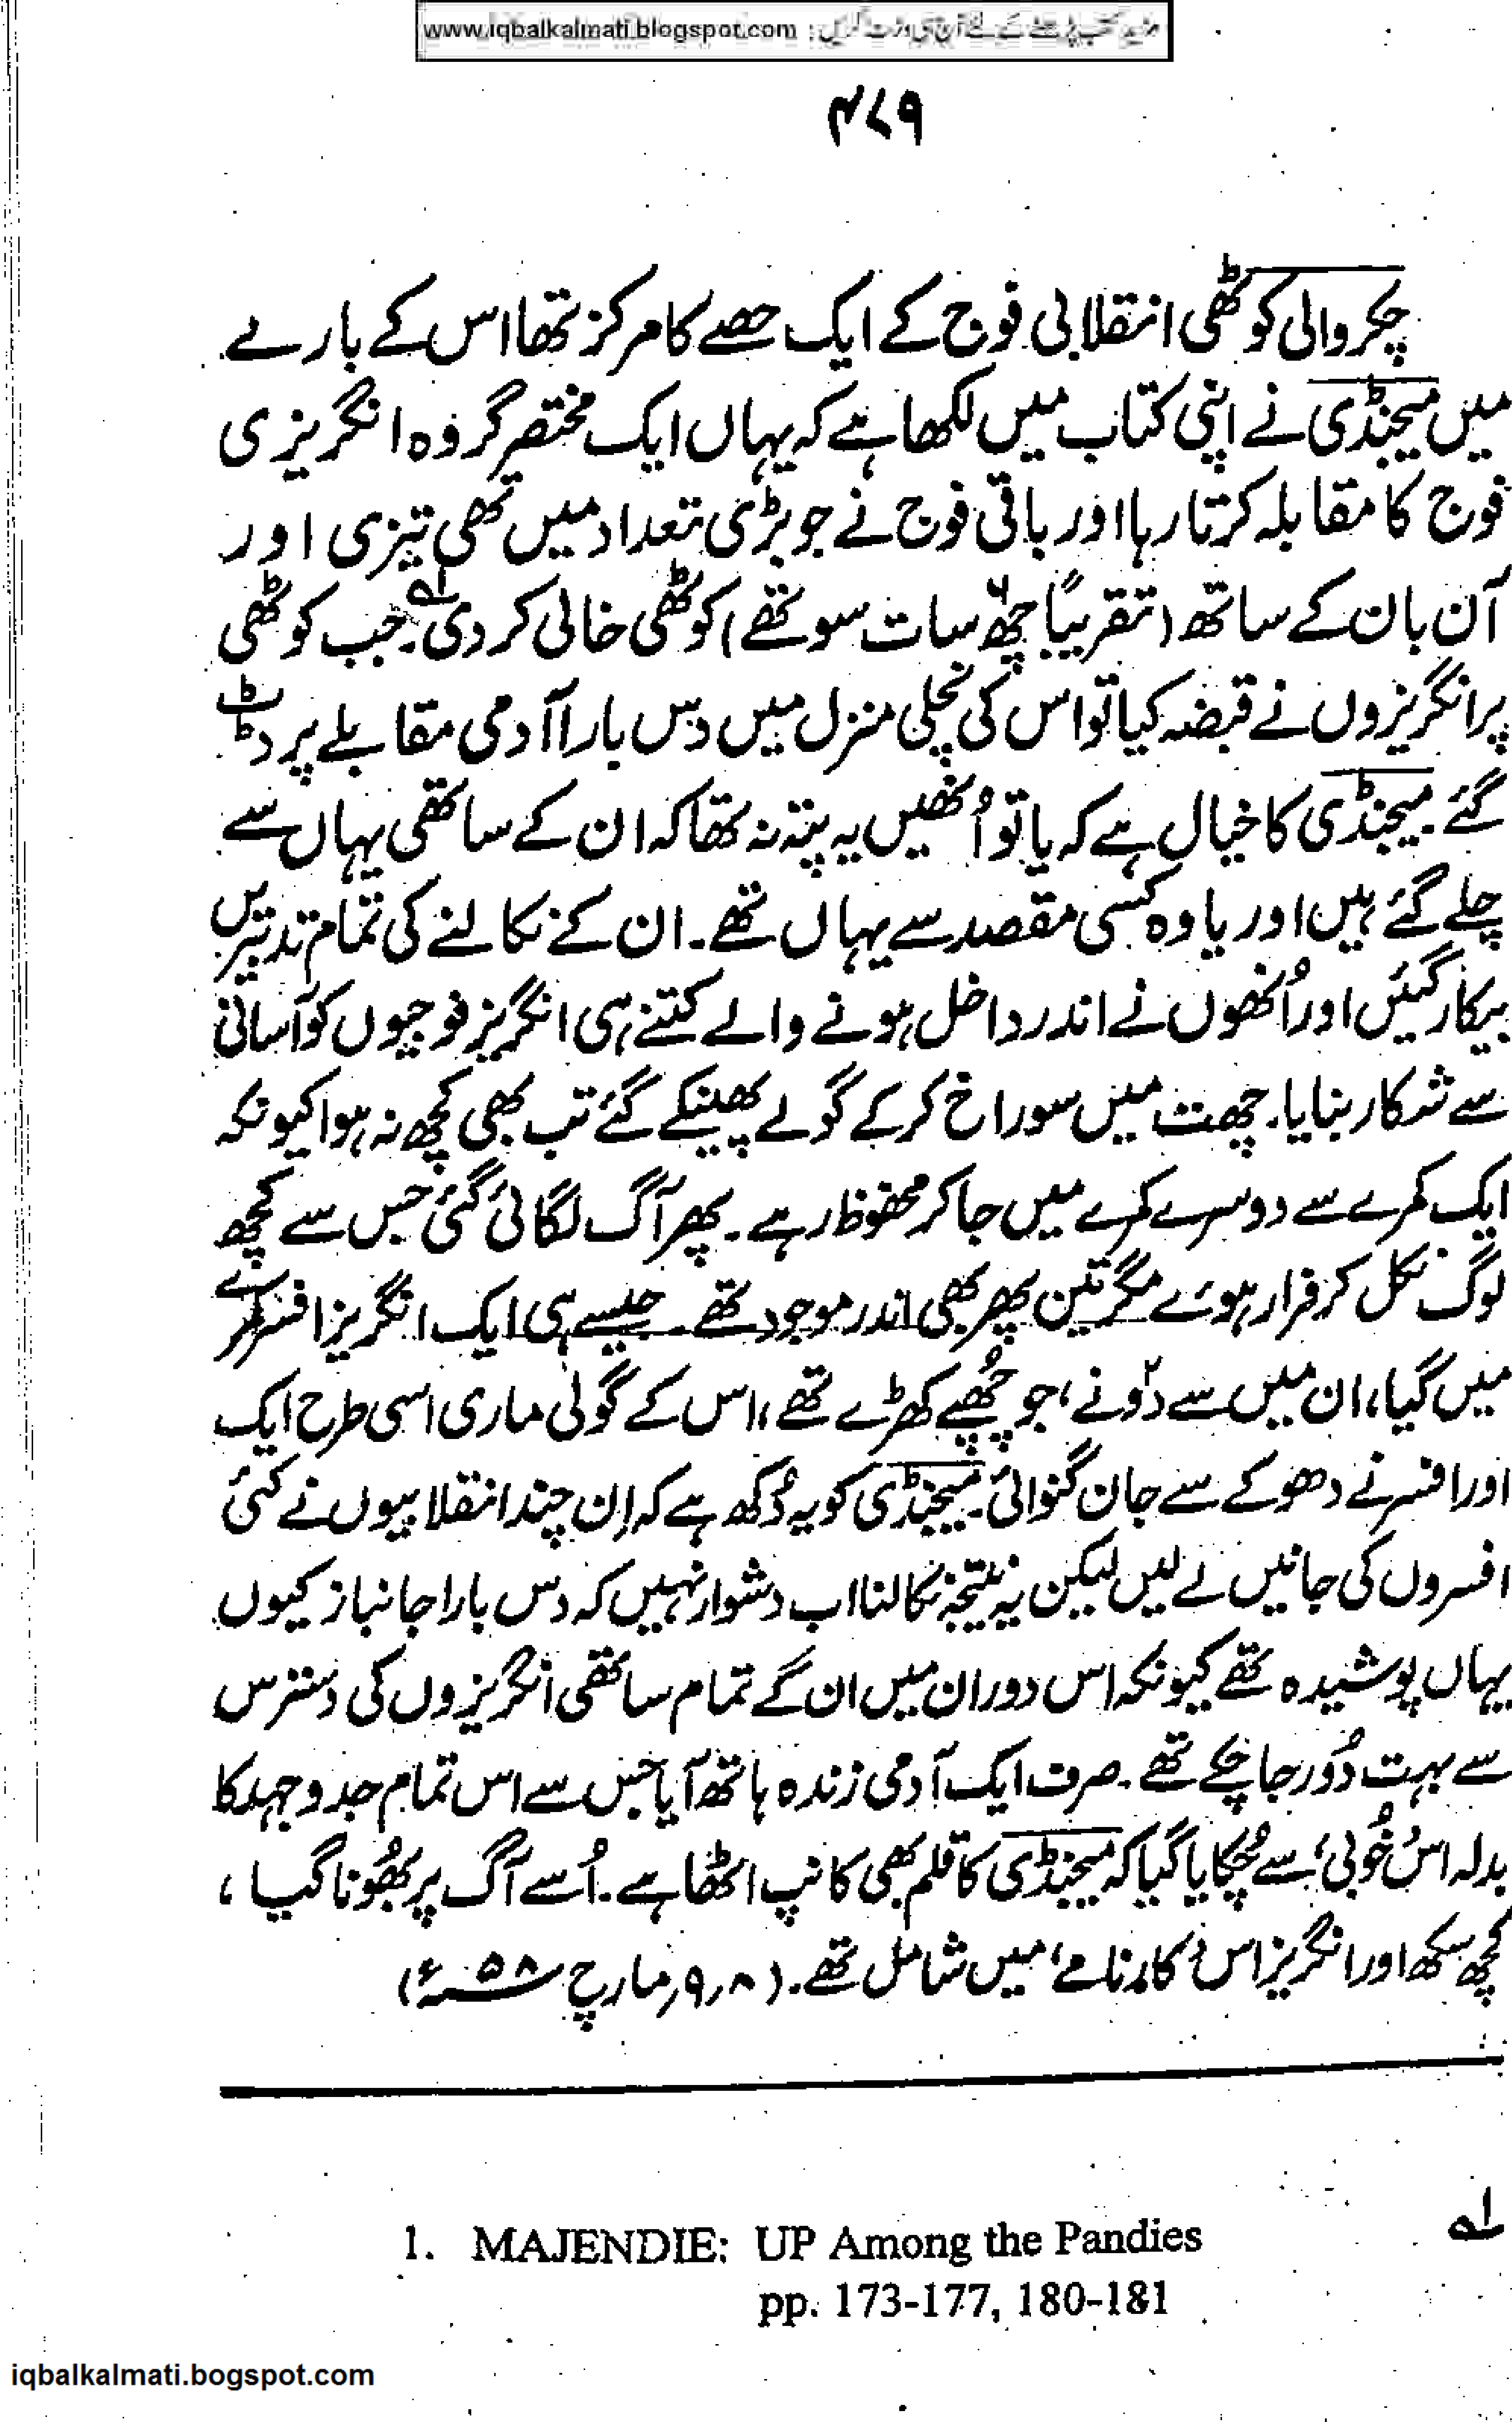 www.iqbalkalmati.blogspot.com : مزید کتب پڑھنے کے لئے آج ہی وزٹ کریں
۴۷۹
چکر والی کوٹھی انقلابی فوج کے ایک حصے کا مرکز تھا اس کے بارے
میں میجنڈی نے اپنی کتاب میں لکھا ہے کہ یہاں ایک مختصر گروہ انگریزی
فوج کا مقابلہ کرتا رہا اور باقی فوج نے جو بڑی تعداد میں تھی تیزی اور
آن بان کے ساتھ (تقریباً چھ سات سو تھے) کوٹھی خالی کر دی۔ لہ جب کوٹھی
پر انگریزوں نے قبضہ کیا تو اس کی نچلی منزل میں دس بارا آدمی مقابلے پر ڈٹ
گئے۔ میجنڈی کا خیال ہے کہ یا تو اُنھیں یہ پتہ نہ تھا کہ ان کے ساتھی یہاں سے
چلے گئے ہیں اور یا وہ کسی مقصد سے یہاں تھے۔ ان کے نکالنے کی تمام تدبیریں
بیکار گئیں اور اُنھوں نے اندر داخل ہونے والے کتنے ہی انگریز فوجیوں کو آسانی
سے شکار بنایا۔ چھت میں سوراخ کر کے گولے پھینکے گئے تب بھی کچھ نہ ہوا کیونکہ
ایک کمرے سے دوسرے کمرے میں جا کر محفوظ رہے۔ پھر آگ لگائی گئی جس سے کچھ
لوگ نکل کر فرار ہوئے مگر تین پھر بھی اندر موجود تھے۔ جیسے ہی ایک انگریز افسر کمرے
میں گیا، ان میں سے دو نے، جو چُھپے کھڑے تھے، اس کے گولی ماری اسی طرح ایک
اور افسر نے دھوکے سے جان گنوائی۔ میجنڈی کو یہ دُکھ ہے کہ اِن چند انقلابیوں نے کئی
افسروں کی جانیں لے لیں لیکن یہ نتیجہ نکالنا اب دشوار نہیں کہ دس بارا جانباز کیوں
یہاں پوشیدہ تھے کیونکہ اس دوران میں ان کے تمام ساتھی انگریزوں کی دسترس
سے بہت دُور جا چکے تھے۔ صرف ایک آدمی زندہ ہاتھ آیا جس سے اس تمام جدوجہد کا
بدلہ اس ’خُوبی‘ سے چُکایا گیا کہ میجنڈی کا قلم بھی کانپ اٹھا ہے۔ اُسے آگ پر بھُونا گیا،
کچھ سکھ اور انگریز اس ’کارنامے‘ میں شامل تھے۔ (۸،۹ مارچ ۵۸ء)
لہ
1. MAJENDIE: UP Among the Pandies
pp. 173-177, 180-181
iqbalkalmati.bogspot.com